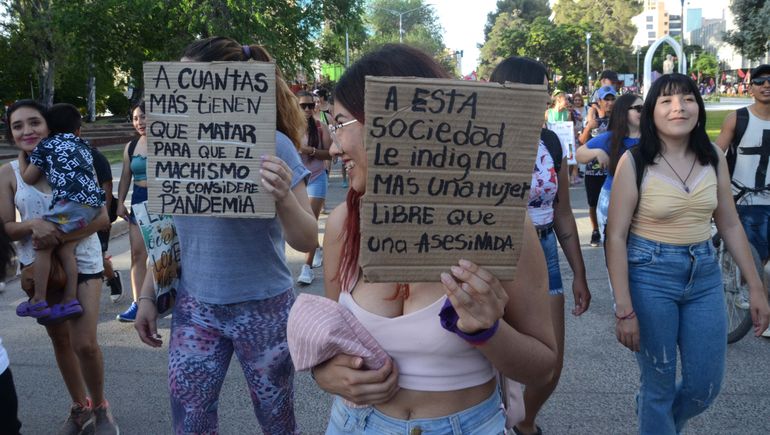 A CUANTAS
MÁS TIENEN
QUE MATAR
PARA QUE EL
MACHISMO
SE CONSIDERE
PANDEMIA
A ESTA
Sociedad
Le indigna
MÁS UNA MUJER
LIBRE QUE
una ASESINADA.